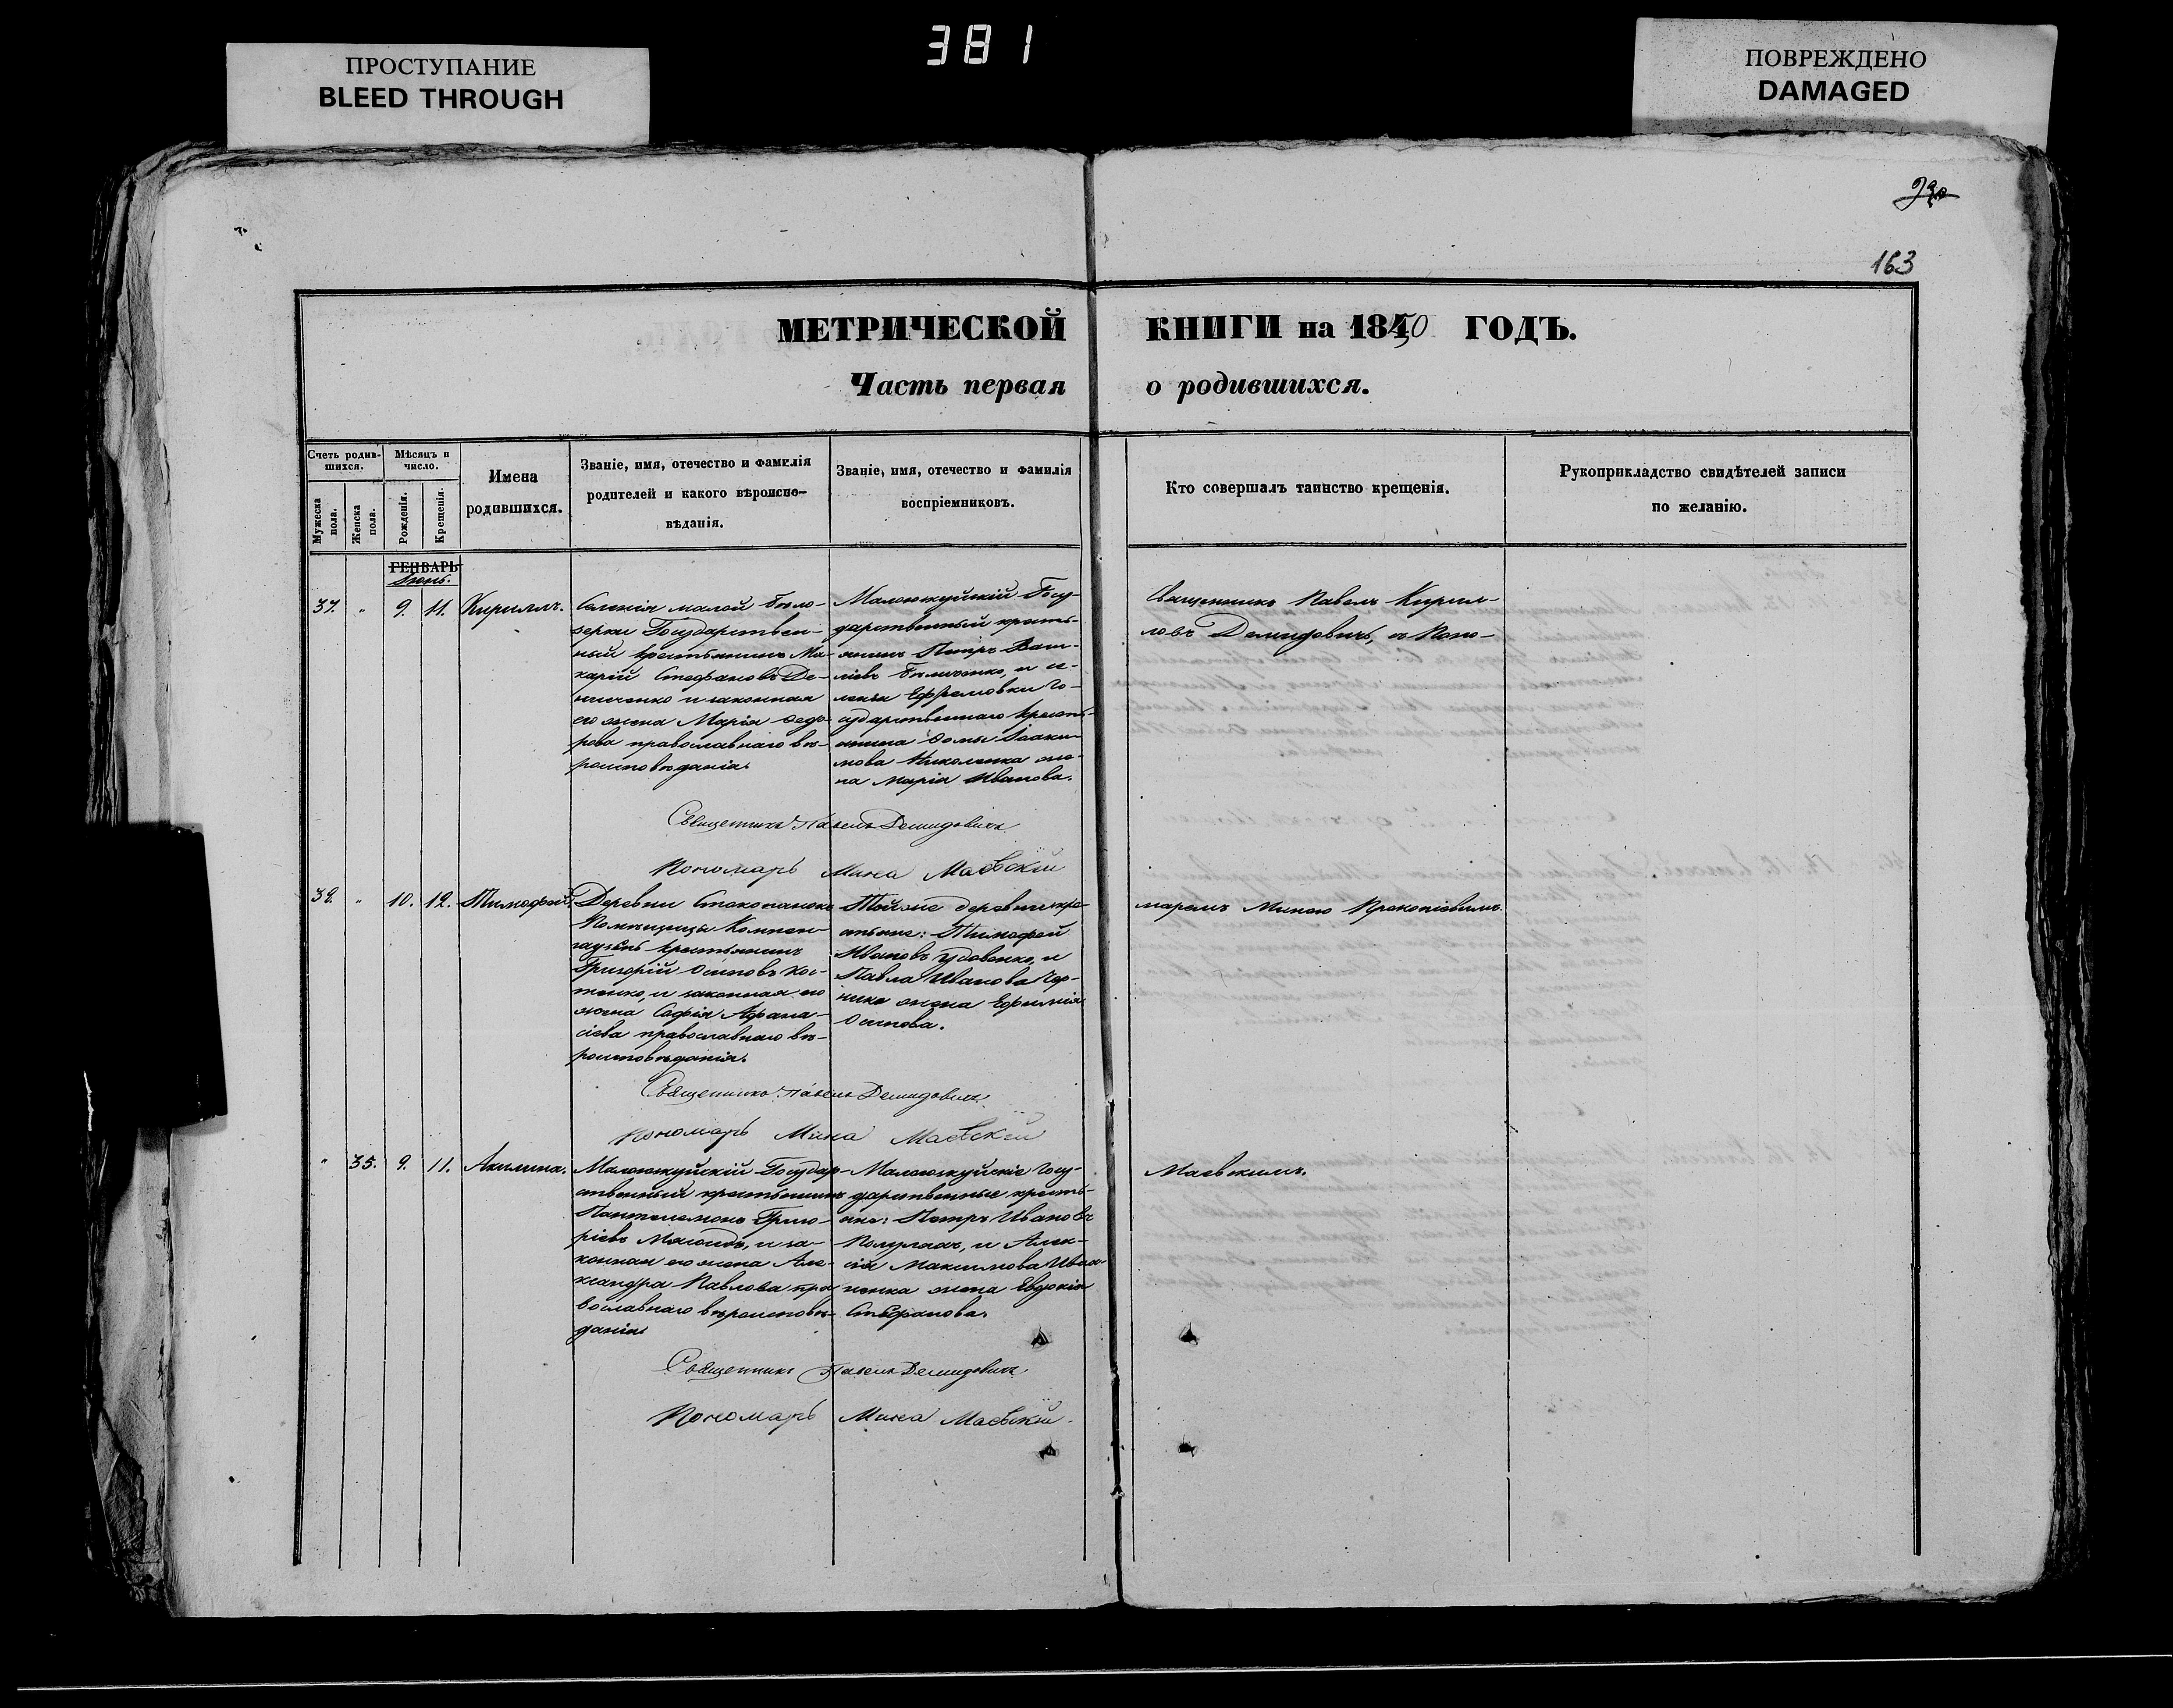 381
ПРОСТУПАНИЕ
BLEED THROUGH
ПОВРЕЖДЕНО
DAMAGED
163
МЕТРИЧЕСКОЙ КНИГИ на 1850 ГОДЪ.
Часть первая о родившихся.
Счетъ родив-
шихся.
Мужеска пола.
Женска пола.
Мѣсяцъ и
число.
Рожденія.
Крещенія.
Имена
родившихся.
Званіе, имя, отечество и фамилія
родителей и какого вѣроиспо-
вѣданія.
Званіе, имя, отечество и фамилія
воспріемниковъ.
Кто совершалъ таинство крещенія.
Рукоприкладство свидѣтелей записи
по желанію.
ГЕНВАРЬ
Іюнь.
37. " 9. 11. Кириллъ.
Селенія малой Бѣло-
зерки Государствен-
ный крестьянинъ Ма-
карій Стефановъ Де-
ниченко и законная
его жена Марія Ѳедо-
рова православнаго вѣ-
роисповѣданія.
Государственный кресть-
янинъ Петръ Васи-
ліевъ и се-
ленія Ефремовки Го-
сударственнаго кресть-
янина Ѳомы Іоаки-
мова Николенка же-
на Марія Иванова.
Священникъ Павелъ Кирил-
ловъ Демидовичъ, съ Поно-
Священникъ Павелъ Демидовичъ
Пономарь Мина Маевскій
38. " 10. 12. Тимофей.
Деревни
Помѣщицы
крестьянинъ
Григорій Осиповъ Кос-
тенко, и законная его
жена Софія Афана-
сіева православнаго вѣ-
роисповѣданія.
Той же деревни кре-
стьяне: Тимофей
Ивановъ Удовенко, и
Павла Иванова
жена Ефимія
Осипова.
маремъ Миною Прокопіевымъ
Священникъ Павелъ Демидовичъ
Пономарь Мина Маевскій
" 35. 9. 11. Акилина.
Государ-
ственный крестьянинъ
Пантелемонъ Григо-
ріевъ и за-
конная его жена Але-
ксандра Павлова пра
вославнаго вѣроисповѣ-
данія
Госу-
дарственные кресть-
яне: Петръ Ивановъ
Полуляхъ, и Алек-
сія Максимова Ива-
ненка жена Евдокія
Стефанова.
Маевскимъ.
Священникъ Павелъ Демидовичъ
Пономарь Мина Маевскій.